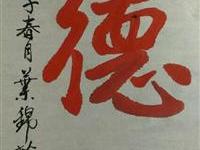 德
子春月葉錦